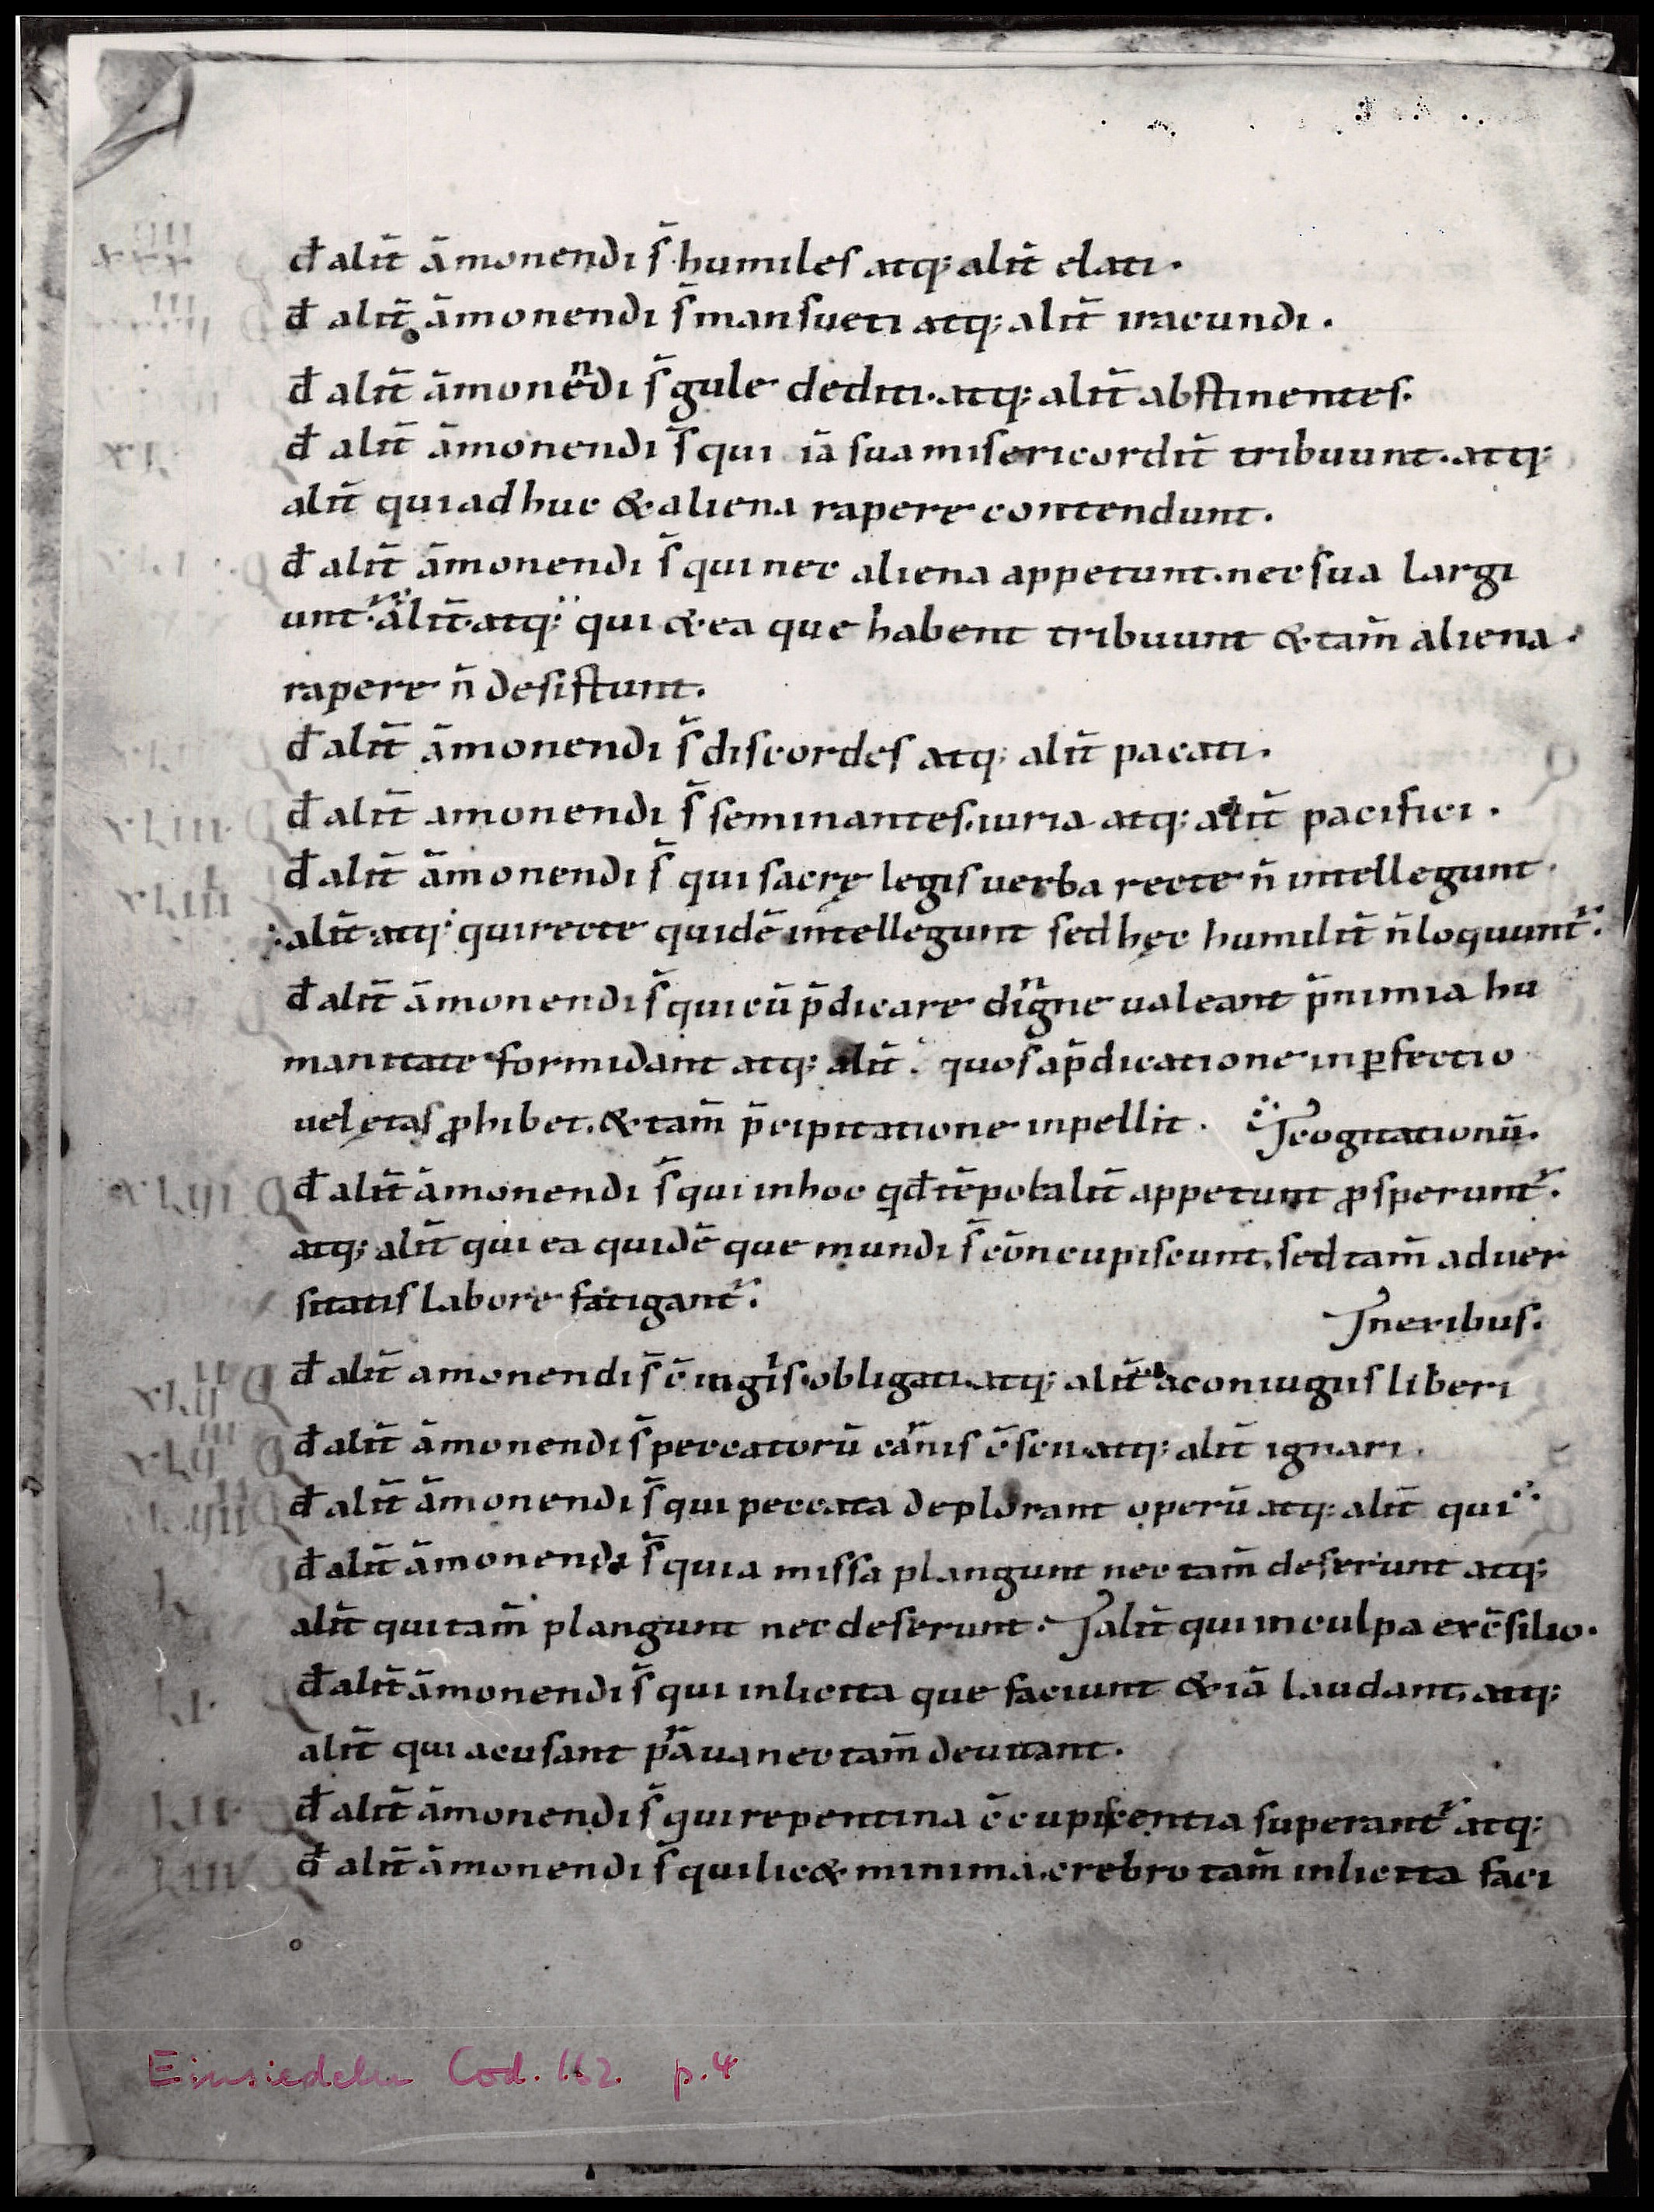 đ alit̄ āmonendi s̄ humiles atq; alit̄ elati.
đ alit̄ āmonendi s̄ mansueti atq; alit̄ iracundi.
đ alit̄ āmonendi s̄ gule dediti. atq; alit̄ abstinentes.
đ alit̄ āmonendi s̄ qui iā sua misericordit̄ tribuunt. atq;
alit̄ qui adhuc & aliena rapere contendunt.
đ alit̄ āmonendi s̄ qui nec aliena appetunt. nec sua largi
unt. alit̄. atq; qui & ea que habent tribuunt & tam̄ aliena.
rapere n̄ desistunt.
đ alit̄ āmonendi s̄ discordes atq; alit̄ pacati.
XLIII đ alit̄ amonendi s̄ seminantes. iuria atq; alit̄ pacifici.
XLIIII đ alit̄ āmonendi s̄ qui sacrę legis uerba recte n̄ intellegunt.
alit̄ atq; qui recte quidē intellegunt sed hęc humilit̄ n̄ loquunt̄.
đ alit̄ āmonendi s̄ qui cū p̄dicare digne ualeant p̄ nimia hu
manitate formidant atq; alit̄. quos a p̄dicatione inꝑfectio
uel ętas ꝓhibet. & tam̄ p̄cipitatione inpellit. cogitationū.
đ alit̄ āmonendi s̄ qui in hoc qđ tēpotalit̄ appetunt ꝓsperunt̄.
atq; alit̄ qui ea quidē que mundi s̄ cōncupiscunt. sed tam̄ aduer
sitatis labore fatigant̄.
neribus.
đ alit̄ amonendi s̄ c̄iugiis obligati. atq; alit̄ a coniugiis liberi
đ alit̄ āmonendi s̄ peccatorū carnis c̄scii atq; alit̄ ignari.
đ alit̄ āmonendi s̄ qui peccata deplorant operū atq; alit̄ qui
L đ alit̄ āmonendi s̄ qui amissa plangunt nec tam̄ deserunt atq;
alit̄ qui tam̄ plangunt nec deserunt. alit̄ qui in culpa ex c̄silio.
LI. đ alit̄ āmonendi s̄ qui inlicita que faciunt & iā laudant. atq;
alit̄ qui acusant praua nec tam̄ deuitant.
LII. đ alit̄ āmonendi s̄ qui repentina c̄cupiscentia superant̄ atq;
LIII đ alit̄ āmonendi s̄ qui lic& minima. crebro tam̄ inlicita faci
Einsiedeln Cod. 162. p. 4